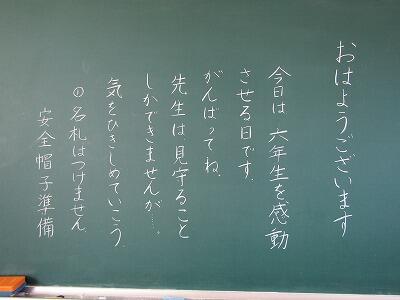 おはようございます
今日は 六年生を感動
させる日です。
がんばってね。
先生は見守ること
しかできませんが…。
気をひきしめていこう
①名札はつけません。
安全帽子準備